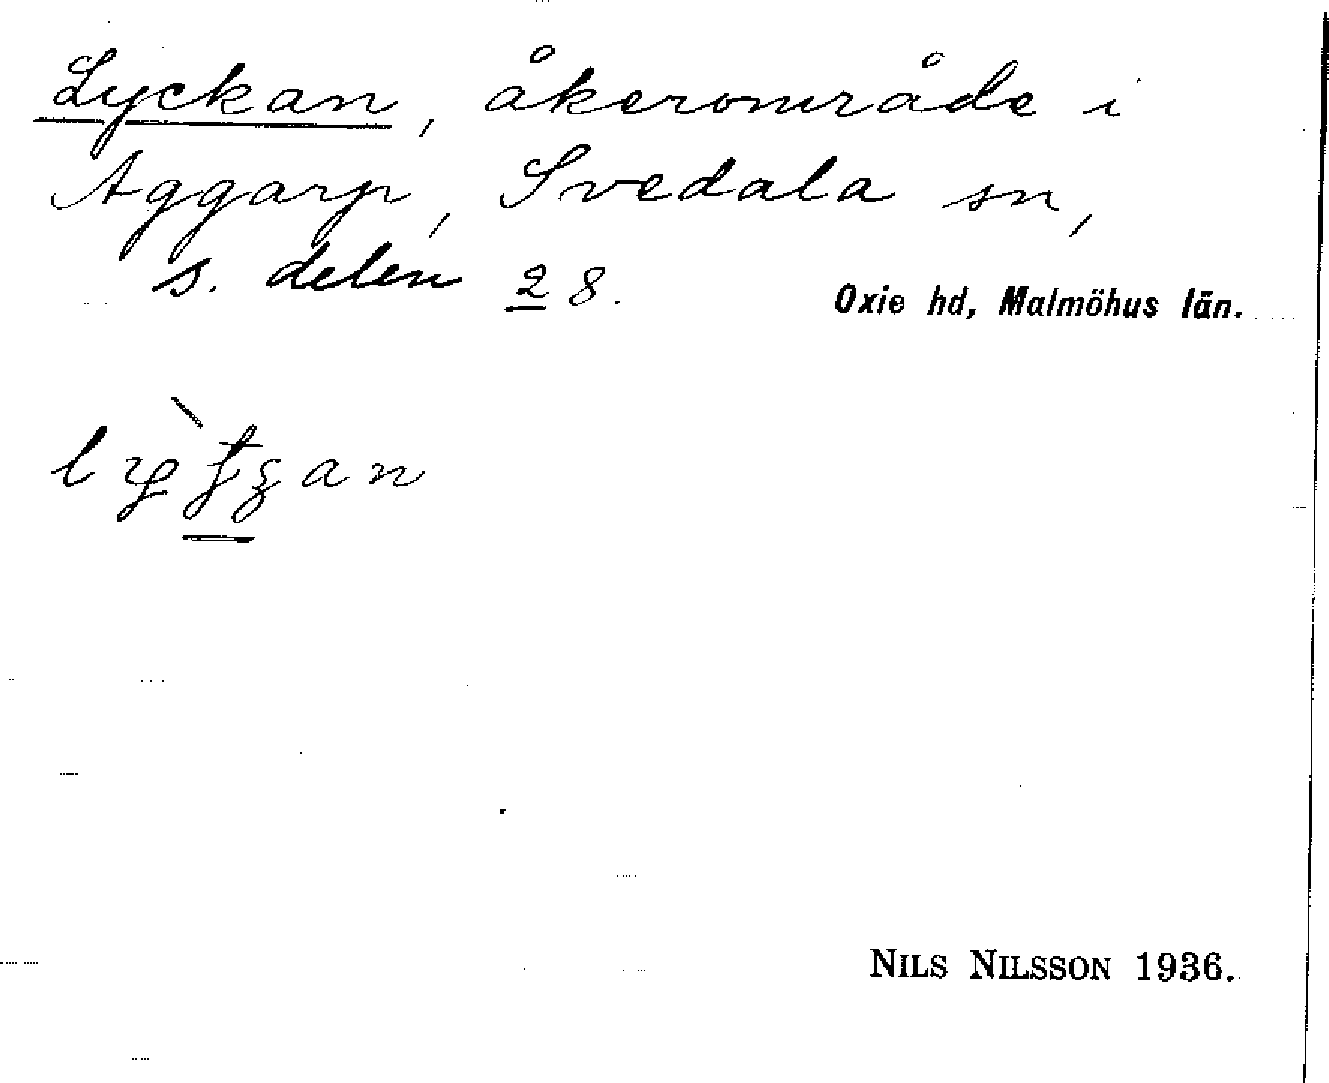 Lyckan, åkerområde i
Aggarp, Svedala sn,
s. delen 28.
Oxie hd, Malmöhus län.
NILS NILSSON 1936.